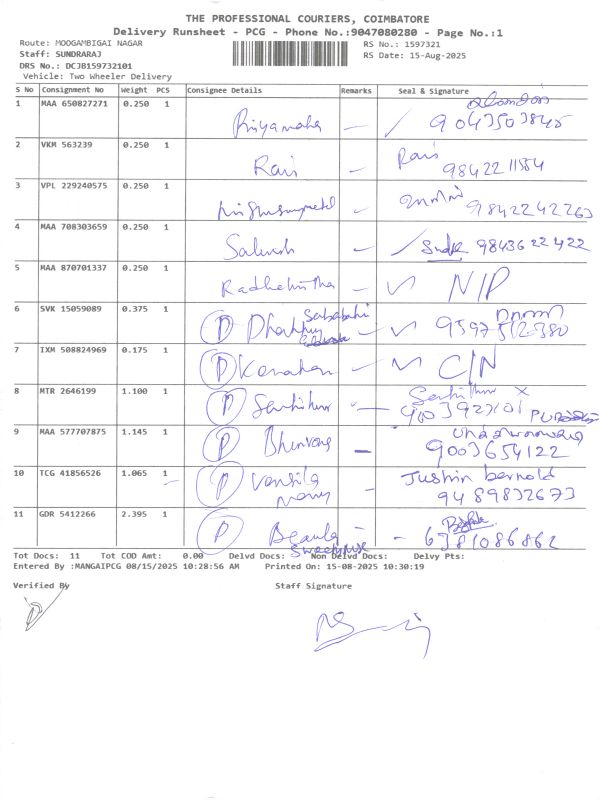 THE PROFESSIONAL COURIERS, COIMBATORE
Delivery Runsheet - PCG - Phone No.:9047080280 - Page No.:1
Route: MOOGAMBIGAI NAGAR RS No.: 1597321
Staff: SUNDRARAJ RS Date: 15-Aug-2025
DRS No.: DCJB159732101
Vehicle: Two Wheeler Delivery
S No Consignment No Weight PCS Consignee Details Remarks Seal & Signature
1 MAA 650827271 0.250 1 Priyamaha 9043503845
2 VKM 563239 0.250 1 Ravi Ravi 9842211584
3 VPL 229240575 0.250 1 9842242263
4 MAA 708303659 0.250 1 9843622422
5 MAA 870701337 0.250 1 N/P
6 SVK 15059089 0.375 1 P 9597512380
7 IXM 508824969 0.175 1 P C/N
8 MTR 2646199 1.100 1 P
9 MAA 577707875 1.145 1 P 9003654122
10 TCG 41856526 1.065 1 P Jushin bernold
9489832673
11 GDR 5412266 2.395 1 P 6381086862
Tot Docs: 11 Tot COD Amt: 0.00 Delvd Docs: Non Delvd Docs: Delvy Pts:
Entered By :MANGAIPCG 08/15/2025 10:28:56 AM Printed On: 15-08-2025 10:30:19
Verified By Staff Signature